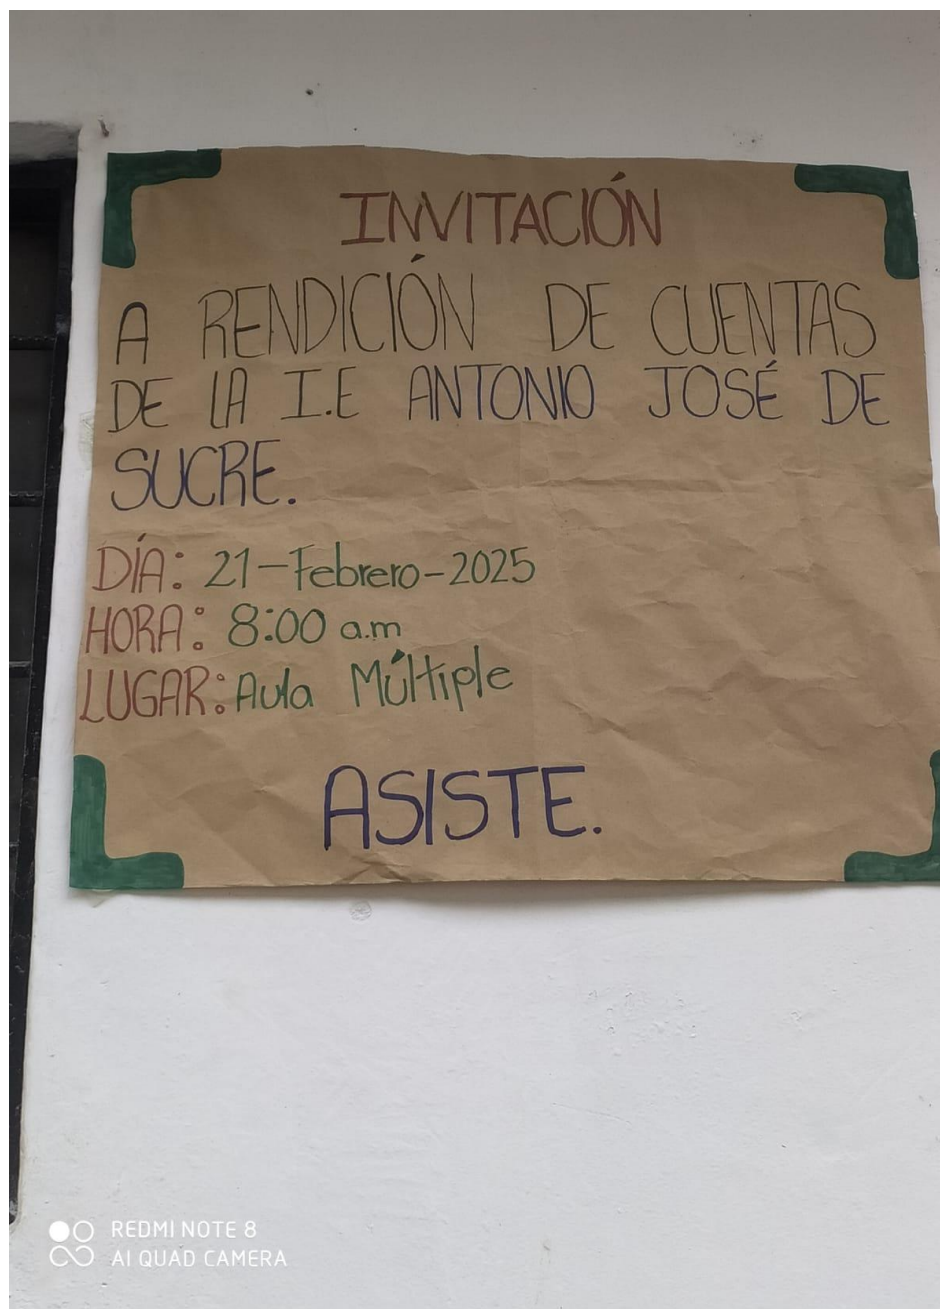 INVITACIÓN
A RENDICIÓN DE CUENTAS
DE LA I.E ANTONIO JOSÉ DE
SUCRE.
DÍA: 21-Febrero-2025
HORA: 8:00 a.m
LUGAR: Aula Múltiple
ASISTE.
REDMI NOTE 8
AI QUAD CAMERA